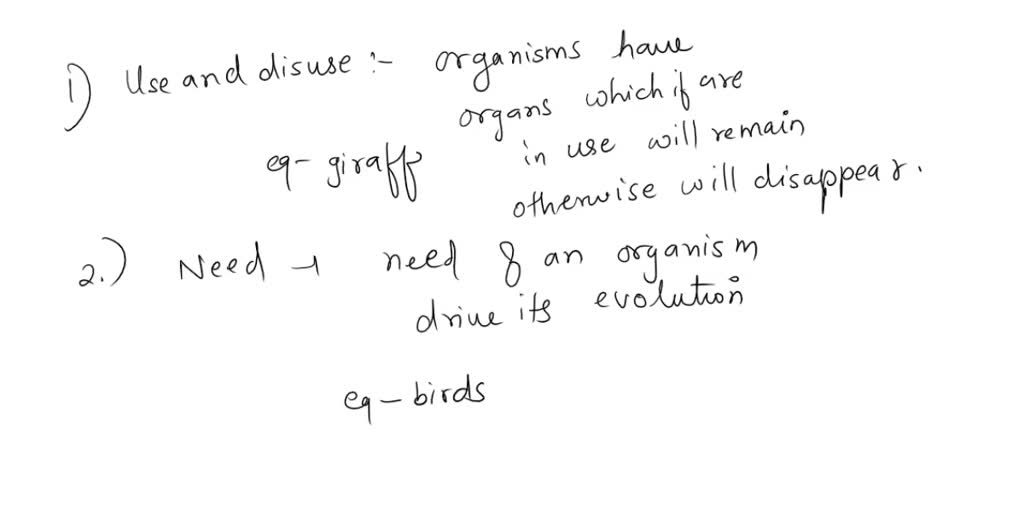 1) Use and disuse :- organisms have
organs which if are
eg- giraff in use will remain
otherwise will disappear.
2.) Need → need of an organism
drive its evolution
eg - birds